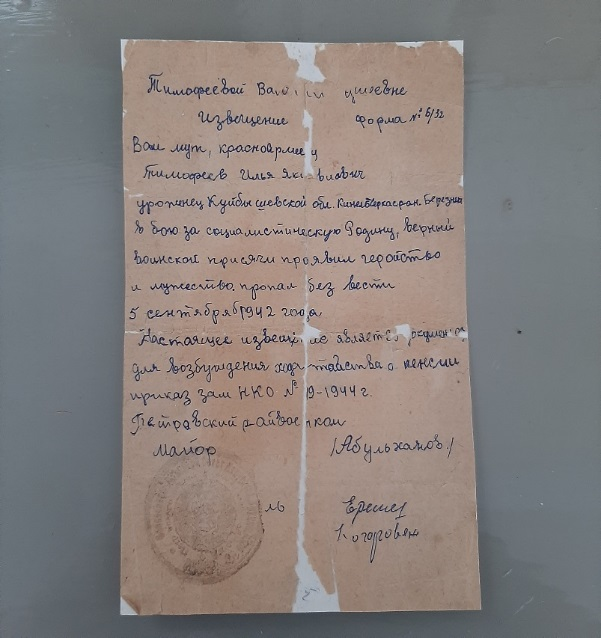 Тимофеевой
Извещение форма № Б/32
Ваш муж, красноармеец
Тимофеев Илья
уроженец Куйбышевской обл.
в бою за социалистическую Родину, верный
воинской присяги проявил геройство
и мужество пропал без вести
5 сентября 1942 года
Настоящее извещение является документ
для возбуждения ходатайства о пенсии
приказ зам НКО № 19-1944 г.
Петровский райвоенком
Майор /Абульханов/